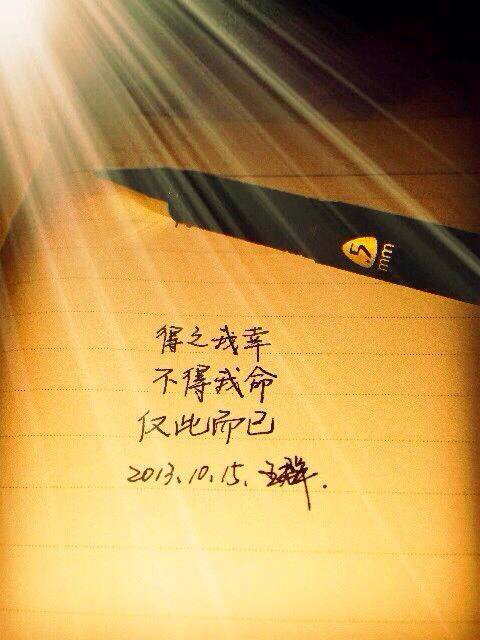 .5
mm
得之我幸
不得我命
仅此而已
2013.10.15.王群.